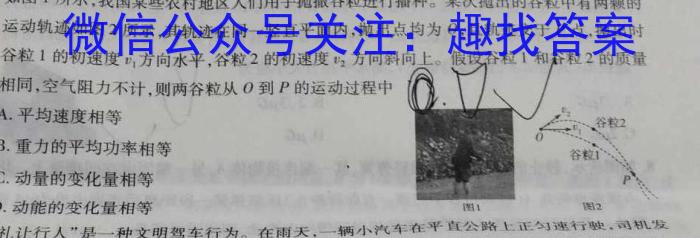 如图1所示,我国某些农村地区人们用手抛撒谷粒进行播种。某次抛出的谷粒中有两颗的
运动轨迹如图2所示,其轨迹在同一竖直平面内,抛出点均为
微信公众号关注:趣找答案
谷粒1的初速度v₁方向水平,谷粒2的初速度v₂方向斜向上。假设谷粒1和谷粒2的质量
相同,空气阻力不计,则两谷粒从O到P的运动过程中
A. 平均速度相等
B. 重力的平均功率相等
C. 动量的变化量相等
D. 动能的变化量相等
v₂
谷粒2
O
v₁
谷粒1
P
图1
图2
礼让行人”是一种文明驾车行为。在雨天,一辆小汽车在平直公路上正匀速行驶,司机发